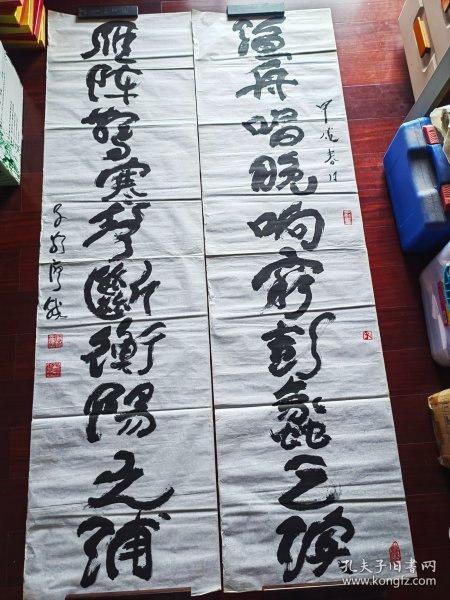 渔舟唱晚响穷彭蠡之滨
雁阵惊寒声斷衡陽之浦
孔夫子旧书网
www.kongfz.com